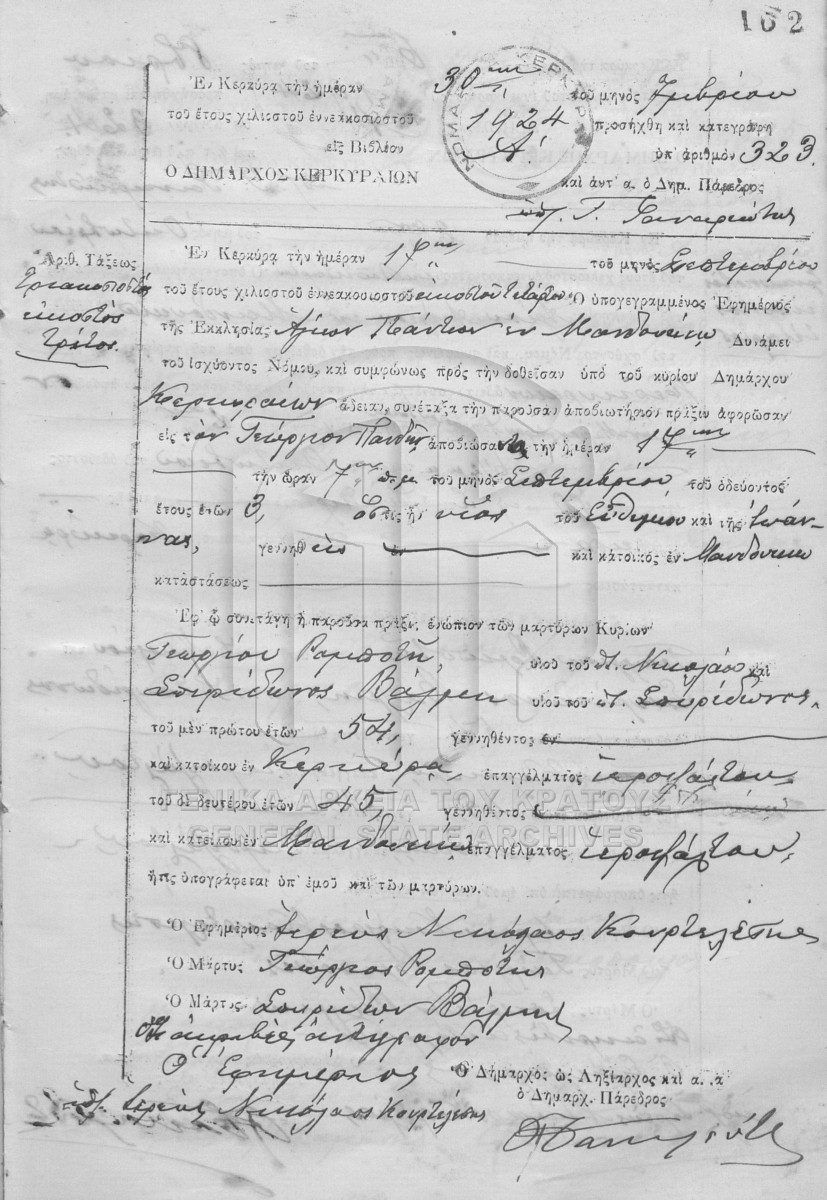 162
Ἐν Κερκύρᾳ τὴν ἡμέραν 30ην τοῦ μηνὸς 7μβρίου
τοῦ ἔτους χιλιοστοῦ ἐννεακοσιοστοῦ 1924 προσήχθη καὶ κατεγράφη
εἰς Βιβλίον Α΄. ὑπ' ἀριθμὸν 323.
Ο ΔΗΜΑΡΧΟΣ ΚΕΡΚΥΡΑΙΩΝ καὶ ἀντ' α. ὁ Δημ. Πάρεδρος
ὑπ. Γ.
Ἀριθ. Τάξεως
τριακοστὸς
εἰκοστὸς
τρίτος.
Ἐν Κερκύρᾳ τὴν ἡμέραν 17ην τοῦ μηνὸς Σεπτεμβρίου
τοῦ ἔτους χιλιοστοῦ ἐννεακουιοστοῦ εἰκοστοῦ τετάρτου Ὁ ὑπογεγραμμένος Ἐφημέριος
τῆς Ἐκκλησίας Ἁγίων Πάντων ἐν Μανδουκίῳ Δυνάμει
τοῦ ἰσχύοντος Νόμου, καὶ συμφώνως πρὸς τὴν δοθεῖσαν ὑπὸ τοῦ κυρίου Δημάρχου
Κερκυραίων ἄδειαν, συνέταξα τὴν παροῦσαν ἀποβιωτήριον πρᾶξιν ἀφορῶσαν
εἰς τὸν Γεώργιον Πανδῆ ἀποβιώσαντα τὴν ἡμέραν 17ην
τὴν ὥραν 7ην π.μ. τοῦ μηνὸς Σεπτεμβρίου τοῦ ὁδεύοντος
ἔτους ἐτῶν 3, ὅστις ἦν υἱὸς τοῦ Εὐθυμίου καὶ τῆς Ἰωάν-
νας, γεννηθεὶς ἐν καὶ κάτοικος ἐν Μανδουκίῳ
καταστάσεως
Ἐφ' ᾧ συνετάγη ἡ παροῦσα πρᾶξις ἐνώπιον τῶν μαρτύρων Κυρίων
Γεωργίου Ρομποτῆ, υἱοῦ τοῦ π. Νικολάου καὶ
Σπυρίδωνος Βάλμη υἱοῦ τοῦ π. Σπυρίδωνος
τοῦ μὲν πρώτου ἐτῶν 54, γεννηθέντος ἐν
καὶ κατοίκου ἐν Κερκύρᾳ, ἐπαγγέλματος ἱεροψάλτου
τοῦ δὲ δευτέρου ἐτῶν 45, γεννηθέντος
καὶ κατοίκου ἐν Μανδουκίῳ ἐπαγγέλματος ἱεροψάλτου,
ἥτις ὑπογράφεται ὑπ' ἐμοῦ καὶ τῶν μαρτύρων.
Ὁ Ἐφημέριος Ἱερεὺς Νικόλαος Κουρτελέσης
Ὁ Μάρτυς Γεώργιος Ρομποτῆς
Ὁ Μάρτυς Σπυρίδων Βάλμης
Ὅτι ἀκριβὲς ἀντίγραφον
Ὁ Ἐφημέριος
ὑπ. Ἱερεὺς Νικόλαος Κουρτελέσης
Ὁ Δήμαρχος ὡς Ληξίαρχος καὶ α.ἀ
ὁ Δημαρχ. Πάρεδρος
ΓΕΝΙΚΑ ΑΡΧΕΙΑ ΤΟΥ ΚΡΑΤΟΥΣ
GENERAL STATE ARCHIVES